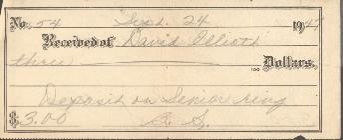 No. 54 Sept. 24 1947
Received of David Elliott
three Dollars.
Deposit on Senior ring
$3.00